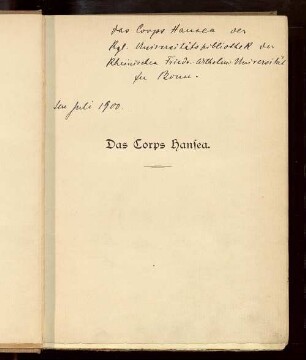 Das Corps Hansea der
Kgl. Universitätsbibliothek der
Rheinischen Friedr. Wilhelm Universität
zu Bonn.
im Juli 1900.
Das Corps Hanſea.